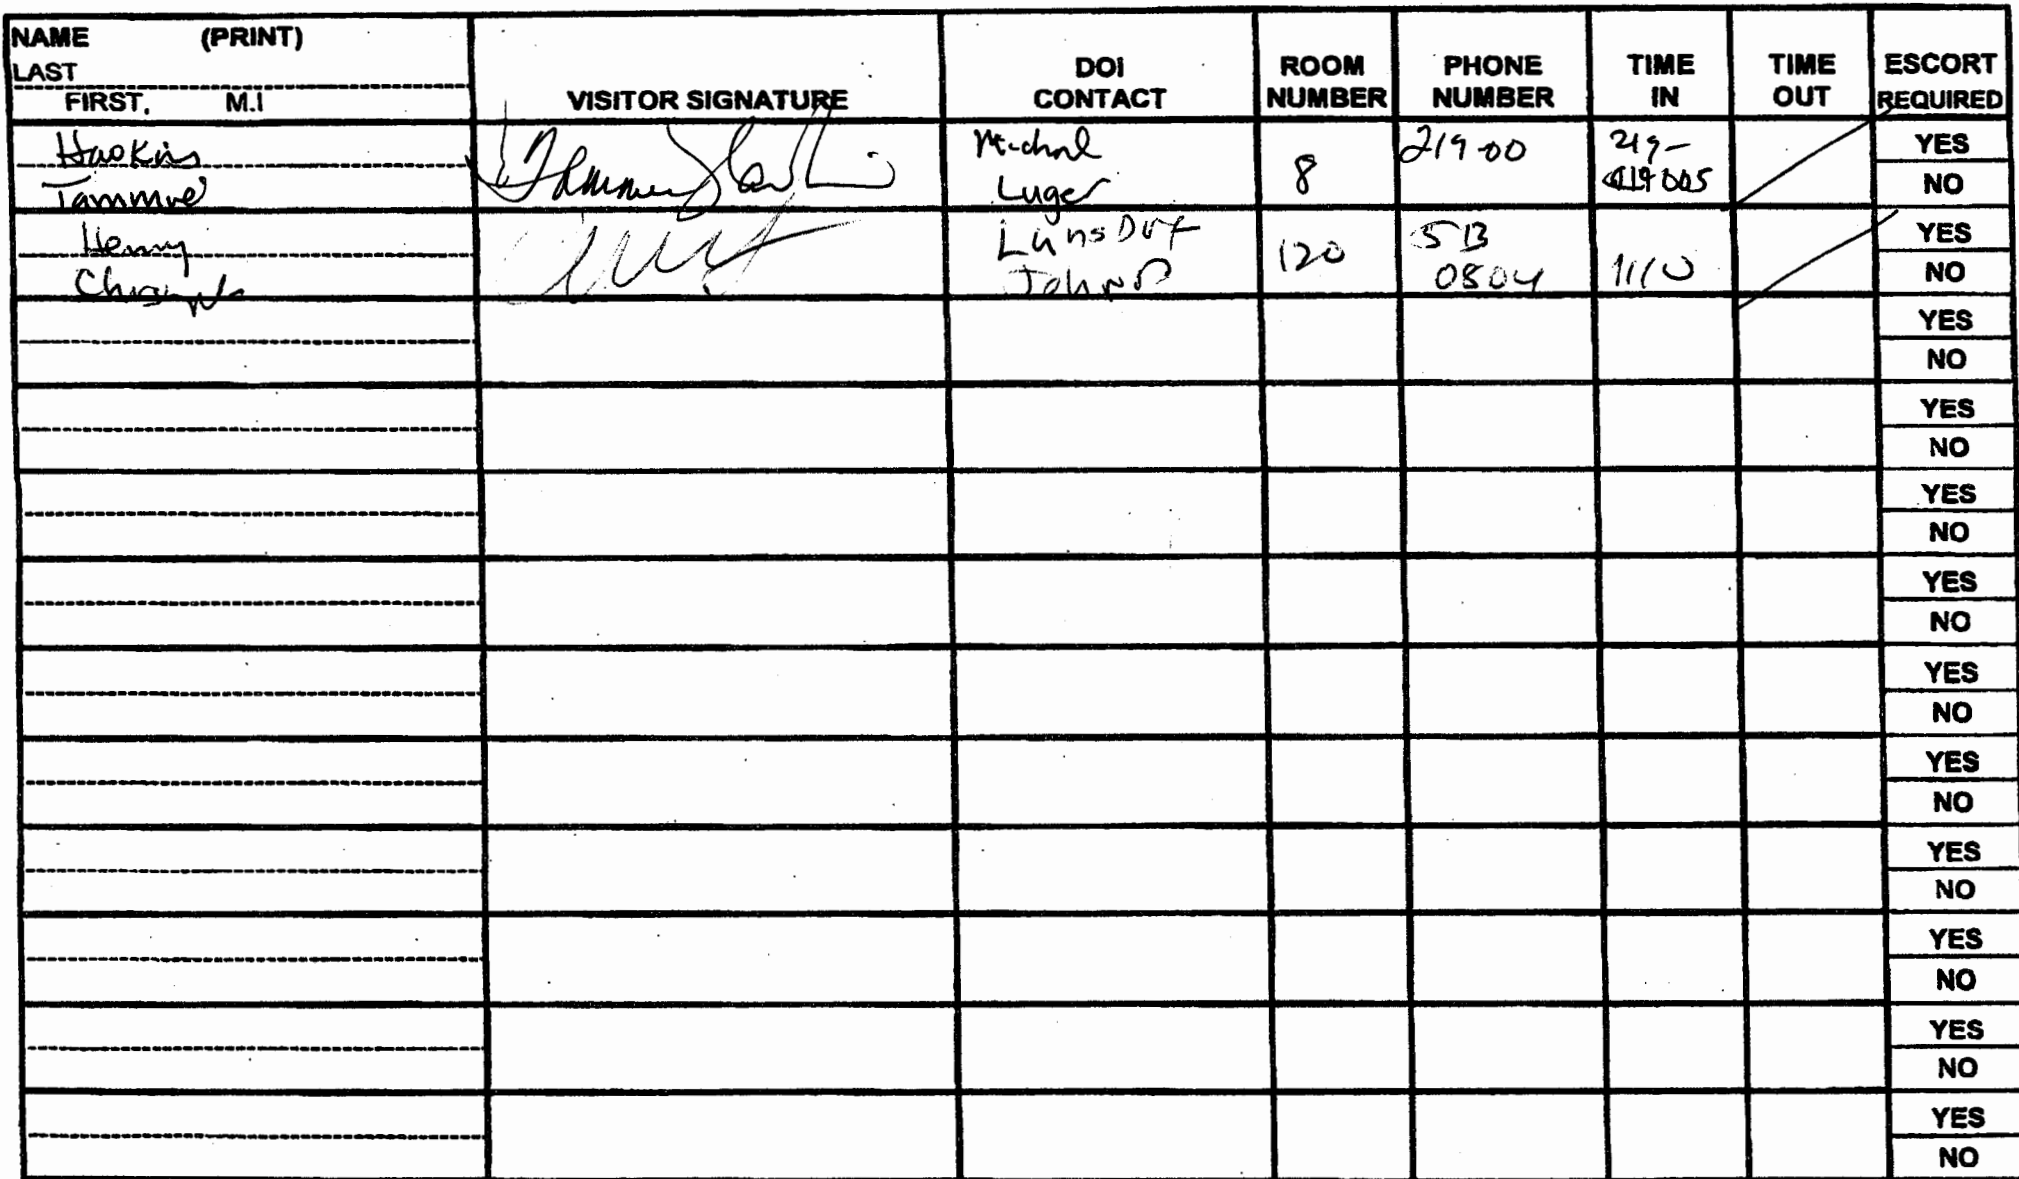 NAME (PRINT)
LAST
FIRST, M.I
VISITOR SIGNATURE
DOI
CONTACT
ROOM
NUMBER
PHONE
NUMBER
TIME
IN
TIME
OUT
ESCORT
REQUIRED
Haskins
Tammie
Luger
8
219-00
219-
YES
NO
Henry
LunsDorf
John
120
513
0804
1110
YES
NO
YES
NO
YES
NO
YES
NO
YES
NO
YES
NO
YES
NO
YES
NO
YES
NO
YES
NO
YES
NO